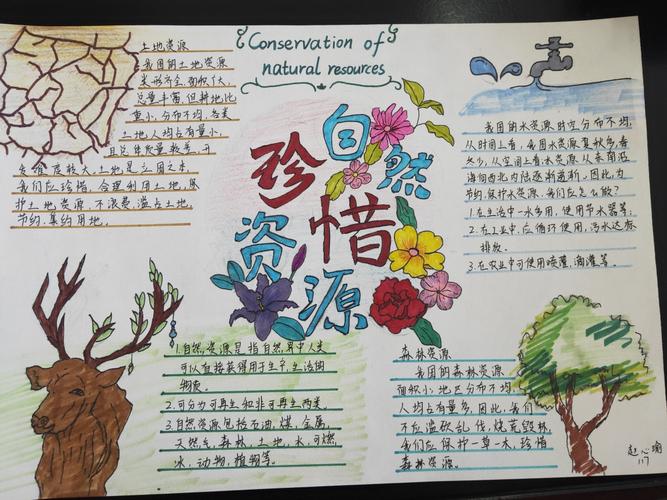 Conservation of
natural resources
珍惜
自然
资源
土地资源
我国的土地资源
类形齐全,面积广大
总量丰富,但耕地比
重小,分布不均,各类
土地人均占有量小,
且总体质量较差,开
发难度较大,土地是立国之本,
我们应珍惜、合理利用土地,保
护土地资源,不浪费、滥占土地,
节约、集约用地。
我国的水资源时空分布不均,
从时间上看,我国水资源夏秋多,春
冬少,从空间上看水资源从东南沿
海向西北内陆逐渐递渐,因此,为
节约、保护水资源,我们应怎么做?
1.在生活中一水多用,使用节水器等,
2.在工业中,应循环使用,污水达标
排放。
3.在农业中可使用喷灌、滴灌等。
1.自然资源是指自然界中人类
可以直接获得用于生产、生活的
物质。
2.可分为可再生和非可再生两类。
3.自然资源包括石油、煤、金属、
天然气、森林、土地、水、可燃
冰、动物、植物等。
森林资源
我国的森林资源
面积小,地区分布不均,
人均占有量多,因此,我们
不应滥砍乱伐,烧荒毁林,
我们应保护一草一木,珍惜
森林资源。
赵心瑜
117